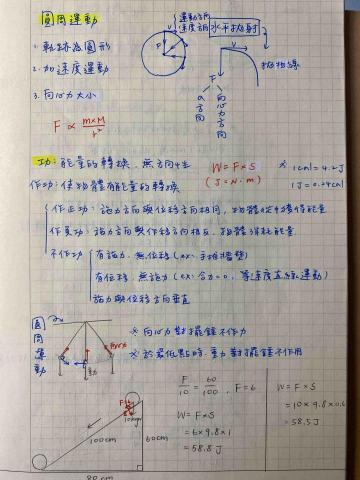 圓周運動
1. 軌跡為圓形
2. 加速度運動
3. 向心力大小
F ∝ m×M / r²
運動方向
速度方向
水平拋射
拋物線
F
V
F
a方向
向心力方向
功:能量的轉換,無方向性
W=F×S
(J=N·m)
※ 1cal=4.2J
1J=0.24cal
作功:使物體有能量的轉換
作正功:施力方向與位移方向相同,物體從中獲得能量
作負功:施力方向與位移方向相反,物體消耗能量
不作功
有施力,無位移(ex:手推牆壁)
有位移,無施力(ex:合力=0,等速度直線運動)
施力與位移方向垂直
圓周運動
※ 向心力對擺錘不作力
※ 於最低點時,重力對擺錘不作用
F/10 = 60/100, F=6
W=F×S
=6×9.8×1
=58.8J
W=F×S
=10×9.8×0.6
=58.5J
100cm
60cm
80cm